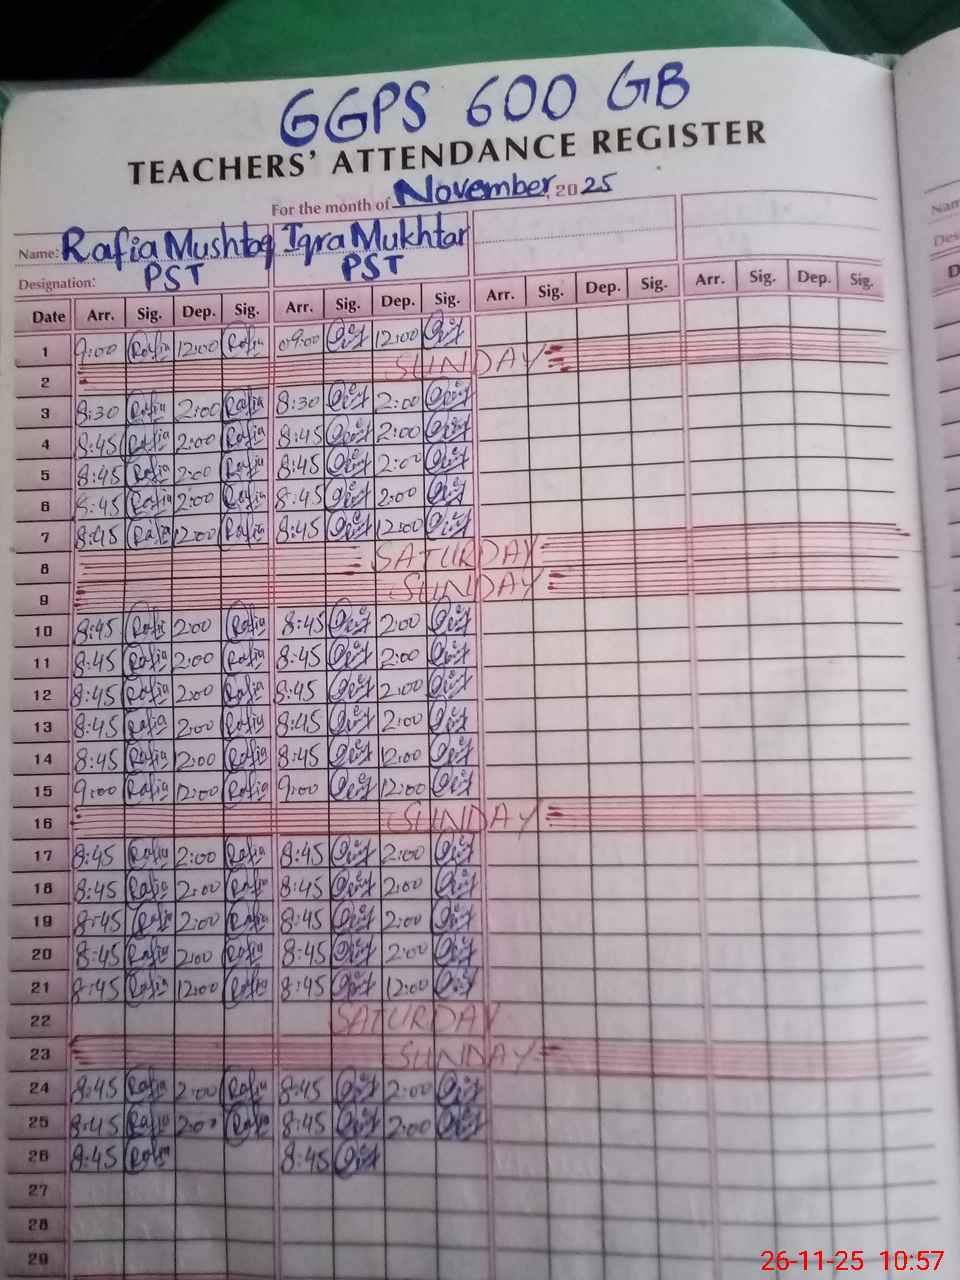 GGPS 600 GB
TEACHERS' ATTENDANCE REGISTER
For the month of November, 2025
Name: Rafia Mushtaq Iqra Mukhtar
Designation: PST PST
Date Arr. Sig. Dep. Sig. Arr. Sig. Dep. Sig. Arr. Sig. Dep. Sig. Arr. Sig. Dep. Sig.
1 9:00 Rafia 12:00 Rafia 09:00 12:00
2 SUNDAY
3 8:30 Rafia 2:00 Rafia 8:30 2:00
4 8:45 Rafia 2:00 Rafia 8:45 2:00
5 8:45 Rafia 2:00 Rafia 8:45 2:00
6 8:45 Rafia 2:00 Rafia 8:45 2:00
7 8:45 Rafia 12:00 Rafia 8:45 12:00
8 SATURDAY
9 SUNDAY
10 8:45 Rafia 2:00 Rafia 8:45 2:00
11 8:45 Rafia 2:00 Rafia 8:45 2:00
12 8:45 Rafia 2:00 Rafia 8:45 2:00
13 8:45 Rafia 2:00 Rafia 8:45 2:00
14 8:45 Rafia 12:00 Rafia 8:45 12:00
15 9:00 Rafia 12:00 Rafia 9:00 12:00
16 SUNDAY
17 8:45 Rafia 2:00 Rafia 8:45 2:00
18 8:45 Rafia 2:00 Rafia 8:45 2:00
19 8:45 Rafia 2:00 Rafia 8:45 2:00
20 8:45 Rafia 2:00 Rafia 8:45 2:00
21 8:45 Rafia 12:00 Rafia 8:45 12:00
22 SATURDAY
23 SUNDAY
24 8:45 Rafia 2:00 Rafia 8:45 2:00
25 8:45 Rafia 2:00 Rafia 8:45 2:00
26 8:45 Rafia 8:45
27
28
29
26-11-25 10:57